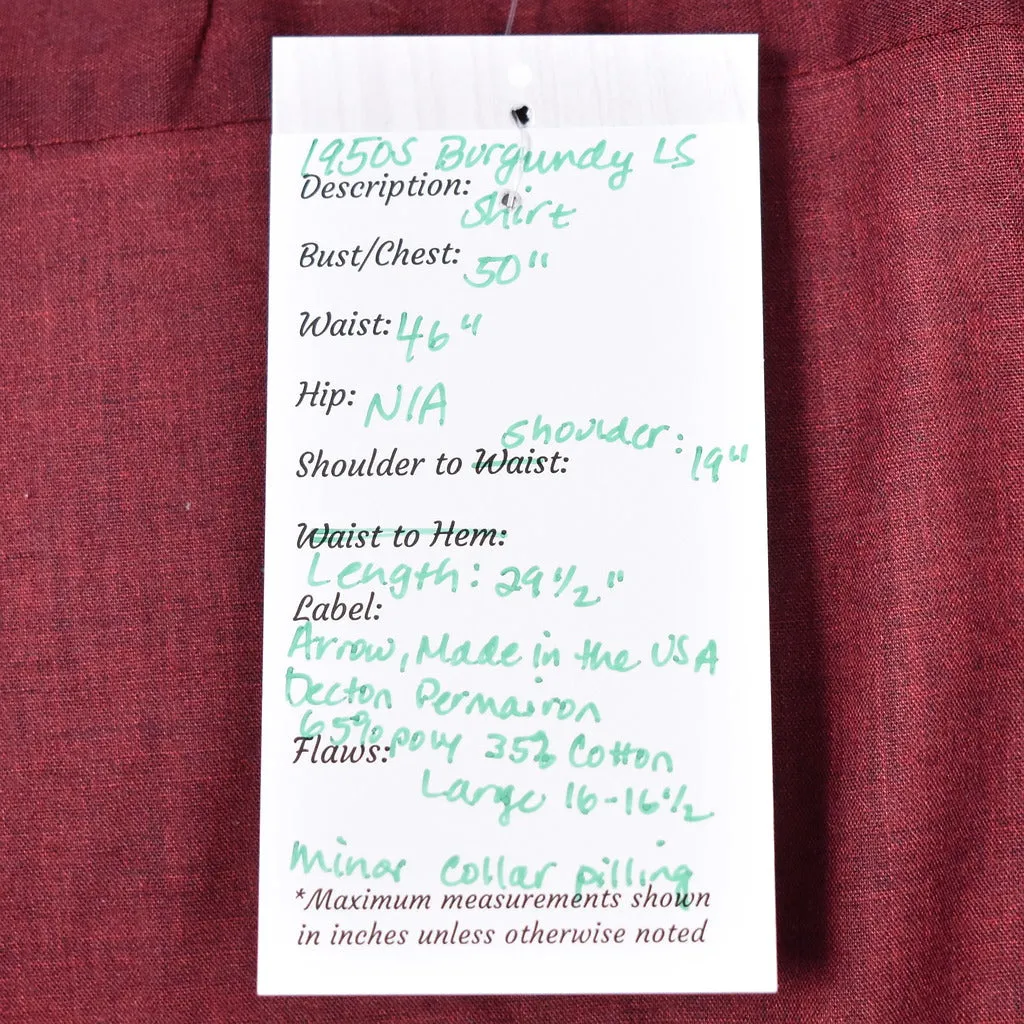 1950s Burgundy LS
Description:
Shirt
Bust/Chest: 50"
Waist: 46"
Hip: N/A
shoulder: 19"
Shoulder to Waist:
Waist to Hem:
Length: 29 1/2"
Label:
Arrow, Made in the USA
Decton Permairon
65% poly 35% Cotton
Flaws:
Large 16-16 1/2
Minor collar pilling
*Maximum measurements shown
in inches unless otherwise noted